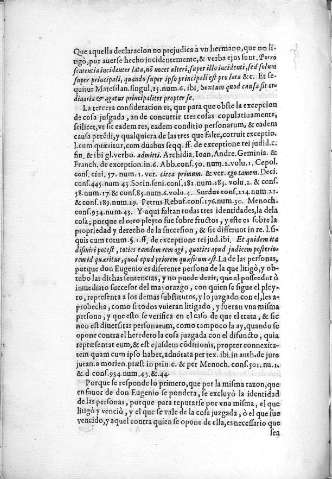 Que aquella declaracion no prejudica à vn hermano, que no li-
tigò, por auerse hecho incidentemente, & verba ejus sunt. Porro
sententia incidenter lata, nō nocet alteri, super illo incidenti, sed solum
super principali, quando super ipso principali est pro lata &c. Et se-
quitur Maresilan. singul. 123. num. 6. ibi, Secùm quod causa sit or-
dinaria & agatur principaliter propter se.
La tercera consideracion es, que para que obste la excepcion
de cosa juzgada, an de concurrir tres cosas copulatiuamente,
scilicet, vt sit eadem res, eadem conditio personarum, & eadem
causa petēdi, y qualquiera de las tres que falte, corruit exceptio.
l. cum quæritur, cum duabus seqq. ff. de exceptione rei judid. c.
fin. & ibi gl. verbo. admitti. Archidia. Ioan. Andre. Geminia. &
Franch. de exception. in 6. Abb. cons. 50. num. 2. volu. 1. Cepol.
cons. ciui. 57. num. 1. ver. circa primum. & ver. ego tamen. Deci.
cons. 445. num. 43. Socin. seni. cons. 181. num. 185. volu. 2. & cons.
38. num. 17. & cons. 85. num. 6. volu. 4. Surdus cons. 324. num. 21.
& cons. 189. num. 19. Petrus Rebuf. cons. 176. num. 30. Menoch.
cons. 934. num. 43. Y aqui faltan todas tres identidades, la de la
cosa, porque el otro pleyto fue sobre frutos, y este es sobre la
propiedad y derecho de la succession, & sic differunt in re. l. si-
quis cum totum §. 1. ff. de exceptione rei jud. ibi. Et quidem ita
diffiniri potest, toties eandem rem agi, quoties apud judicem posteriorem
id quæritur, quod apud priorem quæsitum est. La de las personas,
porque don Eugenio es diferente persona de la que litigò, y ob-
tubo las dichas sentencias, y no puede dezir, que el posseedor ò
inmediato successor del mayorazgo, con quien se sigue el pley-
to, representa a los demas substitutos, y lo juzgado con el les a-
probecha, como si todos vuieran litigado, y fueran vna misma
persona, y que esto se verifica en el caso de que el trata, & sic
nos est diuersitas personarum, como tampoco la ay, quando se
opone contra el heredero la cosa juzgada con el difuncto, quia
representat eum, & est ejusdem conditionis, propter connexita-
tem quam cum ipso habet, admitata per tex. ibi in auth. de jure
juran. a morien. præst. in prin. & per Menoch. cons. 301. na. 1.
& d. cons. 934. num. 43. & 44.
Porque se responde lo primero, que por la misma razon, que
en fauor de don Eugenio se pondera, se excluyò la identidad
de las personas, porque para reputarse por vna misma, el que
litigò y venciò, y el que se vale de la cosa juzgada, ò el que fue
vencido, y aquel contra quien se opone de ella, es necessario que
sea